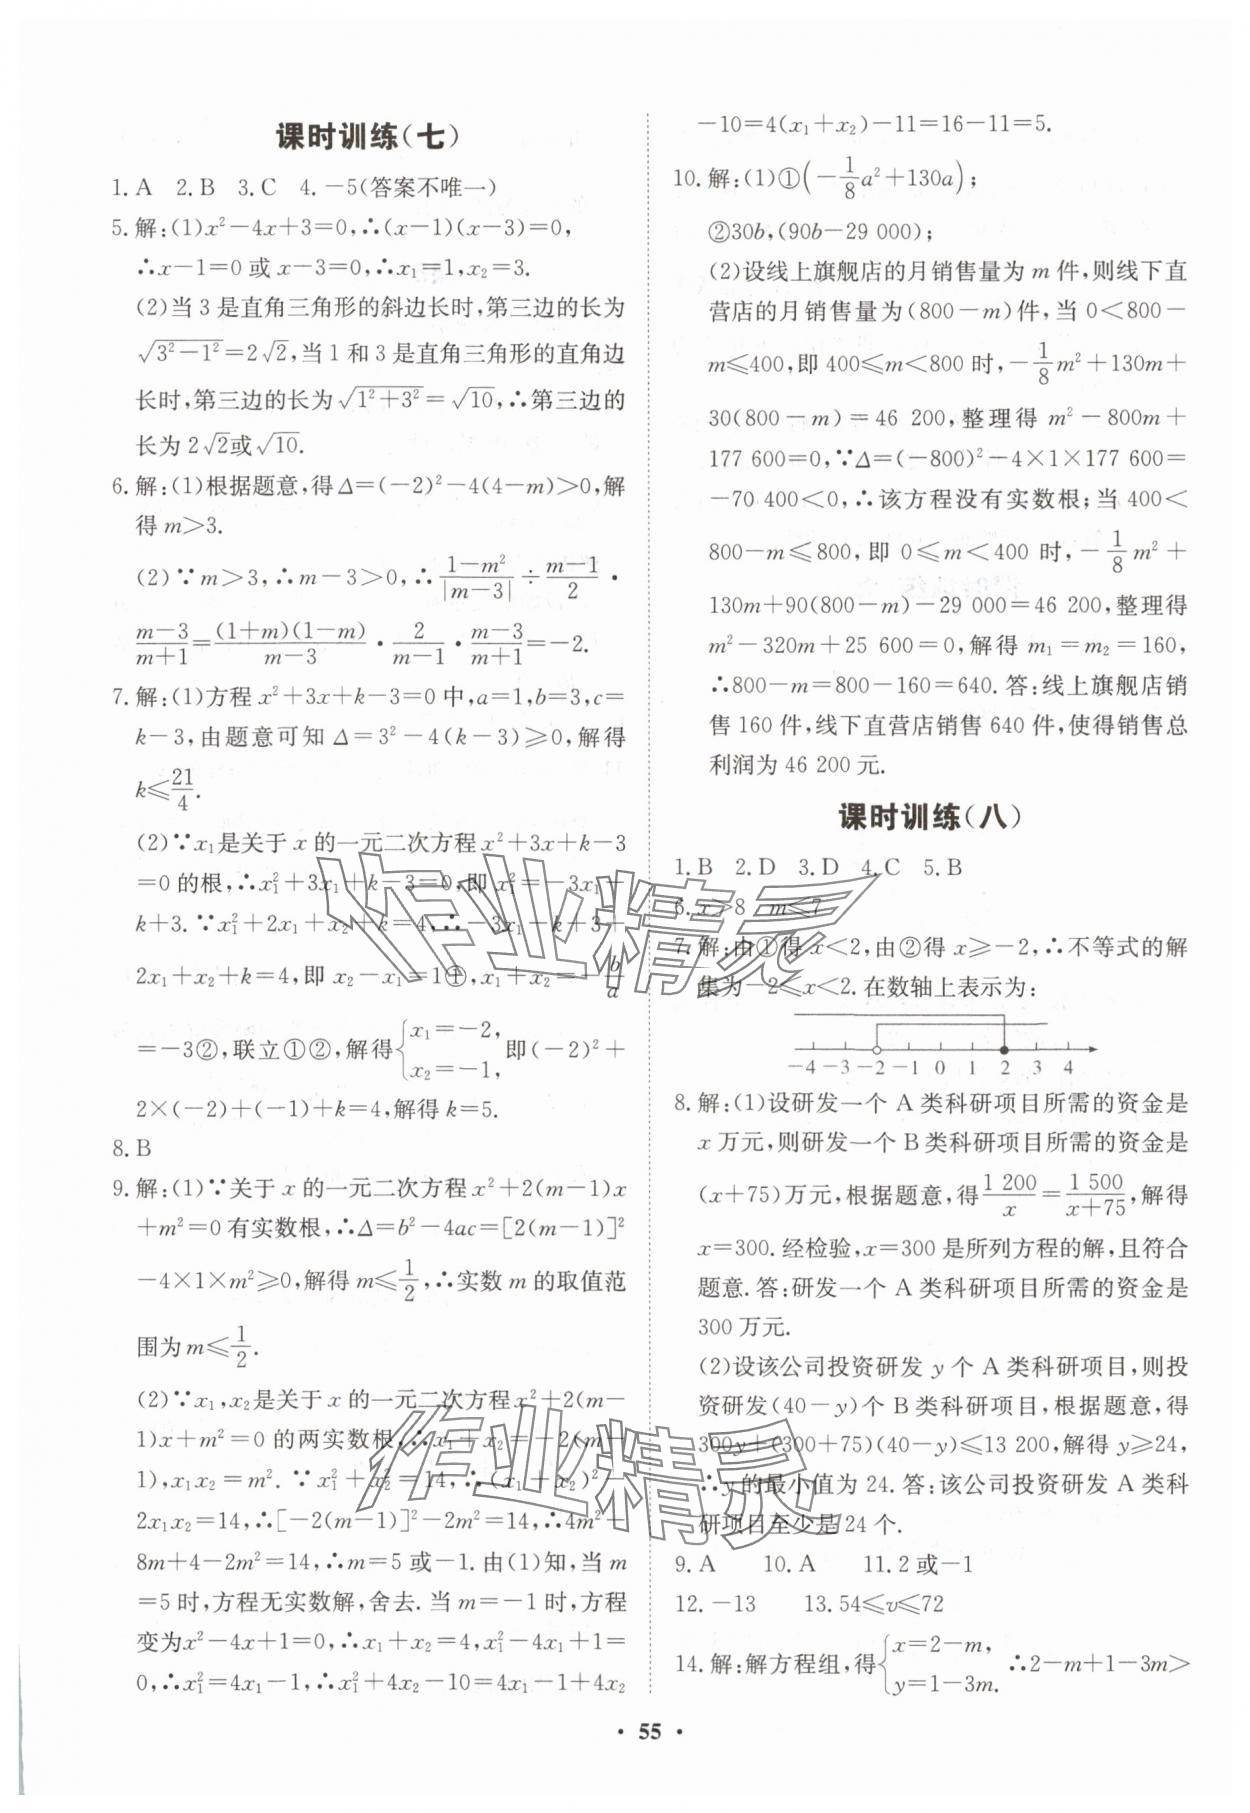 课时训练(七)
1. A　2. B　3. C　4. －5(答案不唯一)
5. 解:(1)x²－4x＋3＝0,∴(x－1)(x－3)＝0,
∴x－1＝0 或 x－3＝0,∴x₁＝1,x₂＝3.
(2)当 3 是直角三角形的斜边长时,第三边的长为
√(3²－1²)＝2√2,当 1 和 3 是直角三角形的直角边
长时,第三边的长为√(1²＋3²)＝√10,∴第三边的
长为 2√2或√10.
6. 解:(1)根据题意,得 Δ＝(－2)²－4(4－m)＞0,解
得 m＞3.
(2)∵m＞3,∴m－3＞0,∴(1－m²)/|m－3|÷(m－1)/2·
(m－3)/(m＋1)＝(1＋m)(1－m)/(m－3)·2/(m－1)·(m－3)/(m＋1)＝－2.
7. 解:(1)方程 x²＋3x＋k－3＝0 中,a＝1,b＝3,c＝
k－3,由题意可知 Δ＝3²－4(k－3)≥0,解得
k≤21/4.
(2)∵x₁是关于 x 的一元二次方程 x²＋3x＋k－3
＝0 的根,∴x₁²＋3x₁＋k－3＝0,即 x₁²＝－3x₁－
k＋3.∵x₁²＋2x₁＋x₂＋k＝4,∴－3x₁－k＋3＋
2x₁＋x₂＋k＝4,即 x₂－x₁＝1①,x₁＋x₂＝－b/a
＝－3②,联立①②,解得{x₁＝－2, x₂＝－1, 即(－2)²＋
2×(－2)＋(－1)＋k＝4,解得 k＝5.
8. B
9. 解:(1)∵关于 x 的一元二次方程 x²＋2(m－1)x
＋m²＝0 有实数根,∴Δ＝b²－4ac＝[2(m－1)]²
－4×1×m²≥0,解得 m≤1/2,∴实数 m 的取值范
围为 m≤1/2.
(2)∵x₁,x₂是关于 x 的一元二次方程 x²＋2(m－
1)x＋m²＝0 的两实数根,∴x₁＋x₂＝－2(m－
1),x₁x₂＝m². ∵x₁²＋x₂²＝14,∴(x₁＋x₂)²－
2x₁x₂＝14,∴[－2(m－1)]²－2m²＝14,∴4m²－
8m＋4－2m²＝14,∴m＝5 或－1. 由(1)知,当 m
＝5 时,方程无实数解,舍去. 当 m＝－1 时,方程
变为x²－4x＋1＝0,∴x₁＋x₂＝4,x₁²－4x₁＋1＝
0,∴x₁²＝4x₁－1,∴x₁²＋4x₂－10＝4x₁－1＋4x₂
－10＝4(x₁＋x₂)－11＝16－11＝5.
10. 解:(1)①(－1/8a²＋130a);
②30b,(90b－29 000);
(2)设线上旗舰店的月销售量为 m 件,则线下直
营店的月销售量为(800－m)件,当 0＜800－
m≤400,即 400≤m＜800 时,－1/8m²＋130m＋
30(800－m)＝46 200,整理得 m²－800m＋
177 600＝0,∵Δ＝(－800)²－4×1×177 600＝
－70 400＜0,∴该方程没有实数根;当 400＜
800－m≤800,即 0≤m＜400 时,－1/8m²＋
130m＋90(800－m)－29 000＝46 200,整理得
m²－320m＋25 600＝0,解得 m₁＝m₂＝160,
∴800－m＝800－160＝640. 答:线上旗舰店销
售 160 件,线下直营店销售 640 件,使得销售总
利润为 46 200 元.
课时训练(八)
1. B　2. D　3. D　4. C　5. B
6. x＞8　m≤7
7. 解:由①得 x＜2,由②得 x≥－2,∴不等式的解
集为－2≤x＜2. 在数轴上表示为:
－4－3－2－1 0 1 2 3 4
8. 解:(1)设研发一个 A 类科研项目所需的资金是
x 万元,则研发一个 B 类科研项目所需的资金是
(x＋75)万元,根据题意,得1 200/x＝1 500/(x＋75),解得
x＝300. 经检验,x＝300 是所列方程的解,且符合
题意. 答:研发一个 A 类科研项目所需的资金是
300 万元.
(2)设该公司投资研发 y 个 A 类科研项目,则投
资研发(40－y)个 B 类科研项目,根据题意,得
300y＋(300＋75)(40－y)≤13 200,解得 y≥24,
∴y 的最小值为 24. 答:该公司投资研发 A 类科
研项目至少是 24 个.
9. A　10. A　11. 2 或－1
12. －13　13. 54≤v≤72
14. 解:解方程组,得{x＝2－m, y＝1－3m. ∴2－m＋1－3m＞
· 55 ·
作业精灵
作业精灵